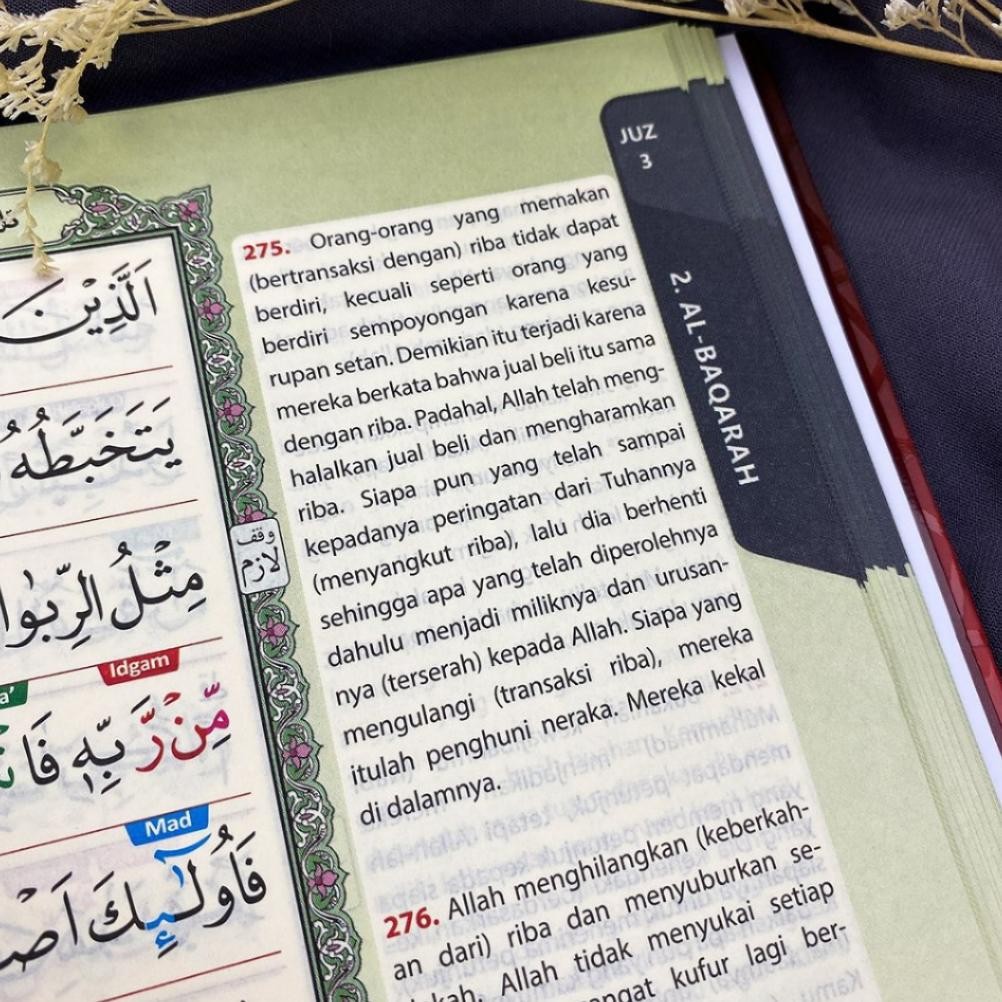 JUZ
3
2. AL-BAQARAH
275. Orang-orang yang memakan
(bertransaksi dengan) riba tidak dapat
berdiri, kecuali seperti orang yang
berdiri sempoyongan karena kesu-
rupan setan. Demikian itu terjadi karena
mereka berkata bahwa jual beli itu sama
dengan riba. Padahal, Allah telah meng-
halalkan jual beli dan mengharamkan
riba. Siapa pun yang telah sampai
kepadanya peringatan dari Tuhannya
(menyangkut riba), lalu dia berhenti
sehingga apa yang telah diperolehnya
dahulu menjadi miliknya dan urusan-
nya (terserah) kepada Allah. Siapa yang
mengulangi (transaksi riba), mereka
itulah penghuni neraka. Mereka kekal
di dalamnya.
276. Allah menghilangkan (keberkah-
an dari) riba dan menyuburkan se-
Allah tidak menyukai setiap
kufur lagi ber-
اَلَّذِيْنَ
يَتَخَبَّطُهُ
مِثْلُ الرِّبٰوا
Idgam
مِّنْ رَّبِّهٖ
Mad
فَاُولٰۤىِٕكَ
وقف
لازم